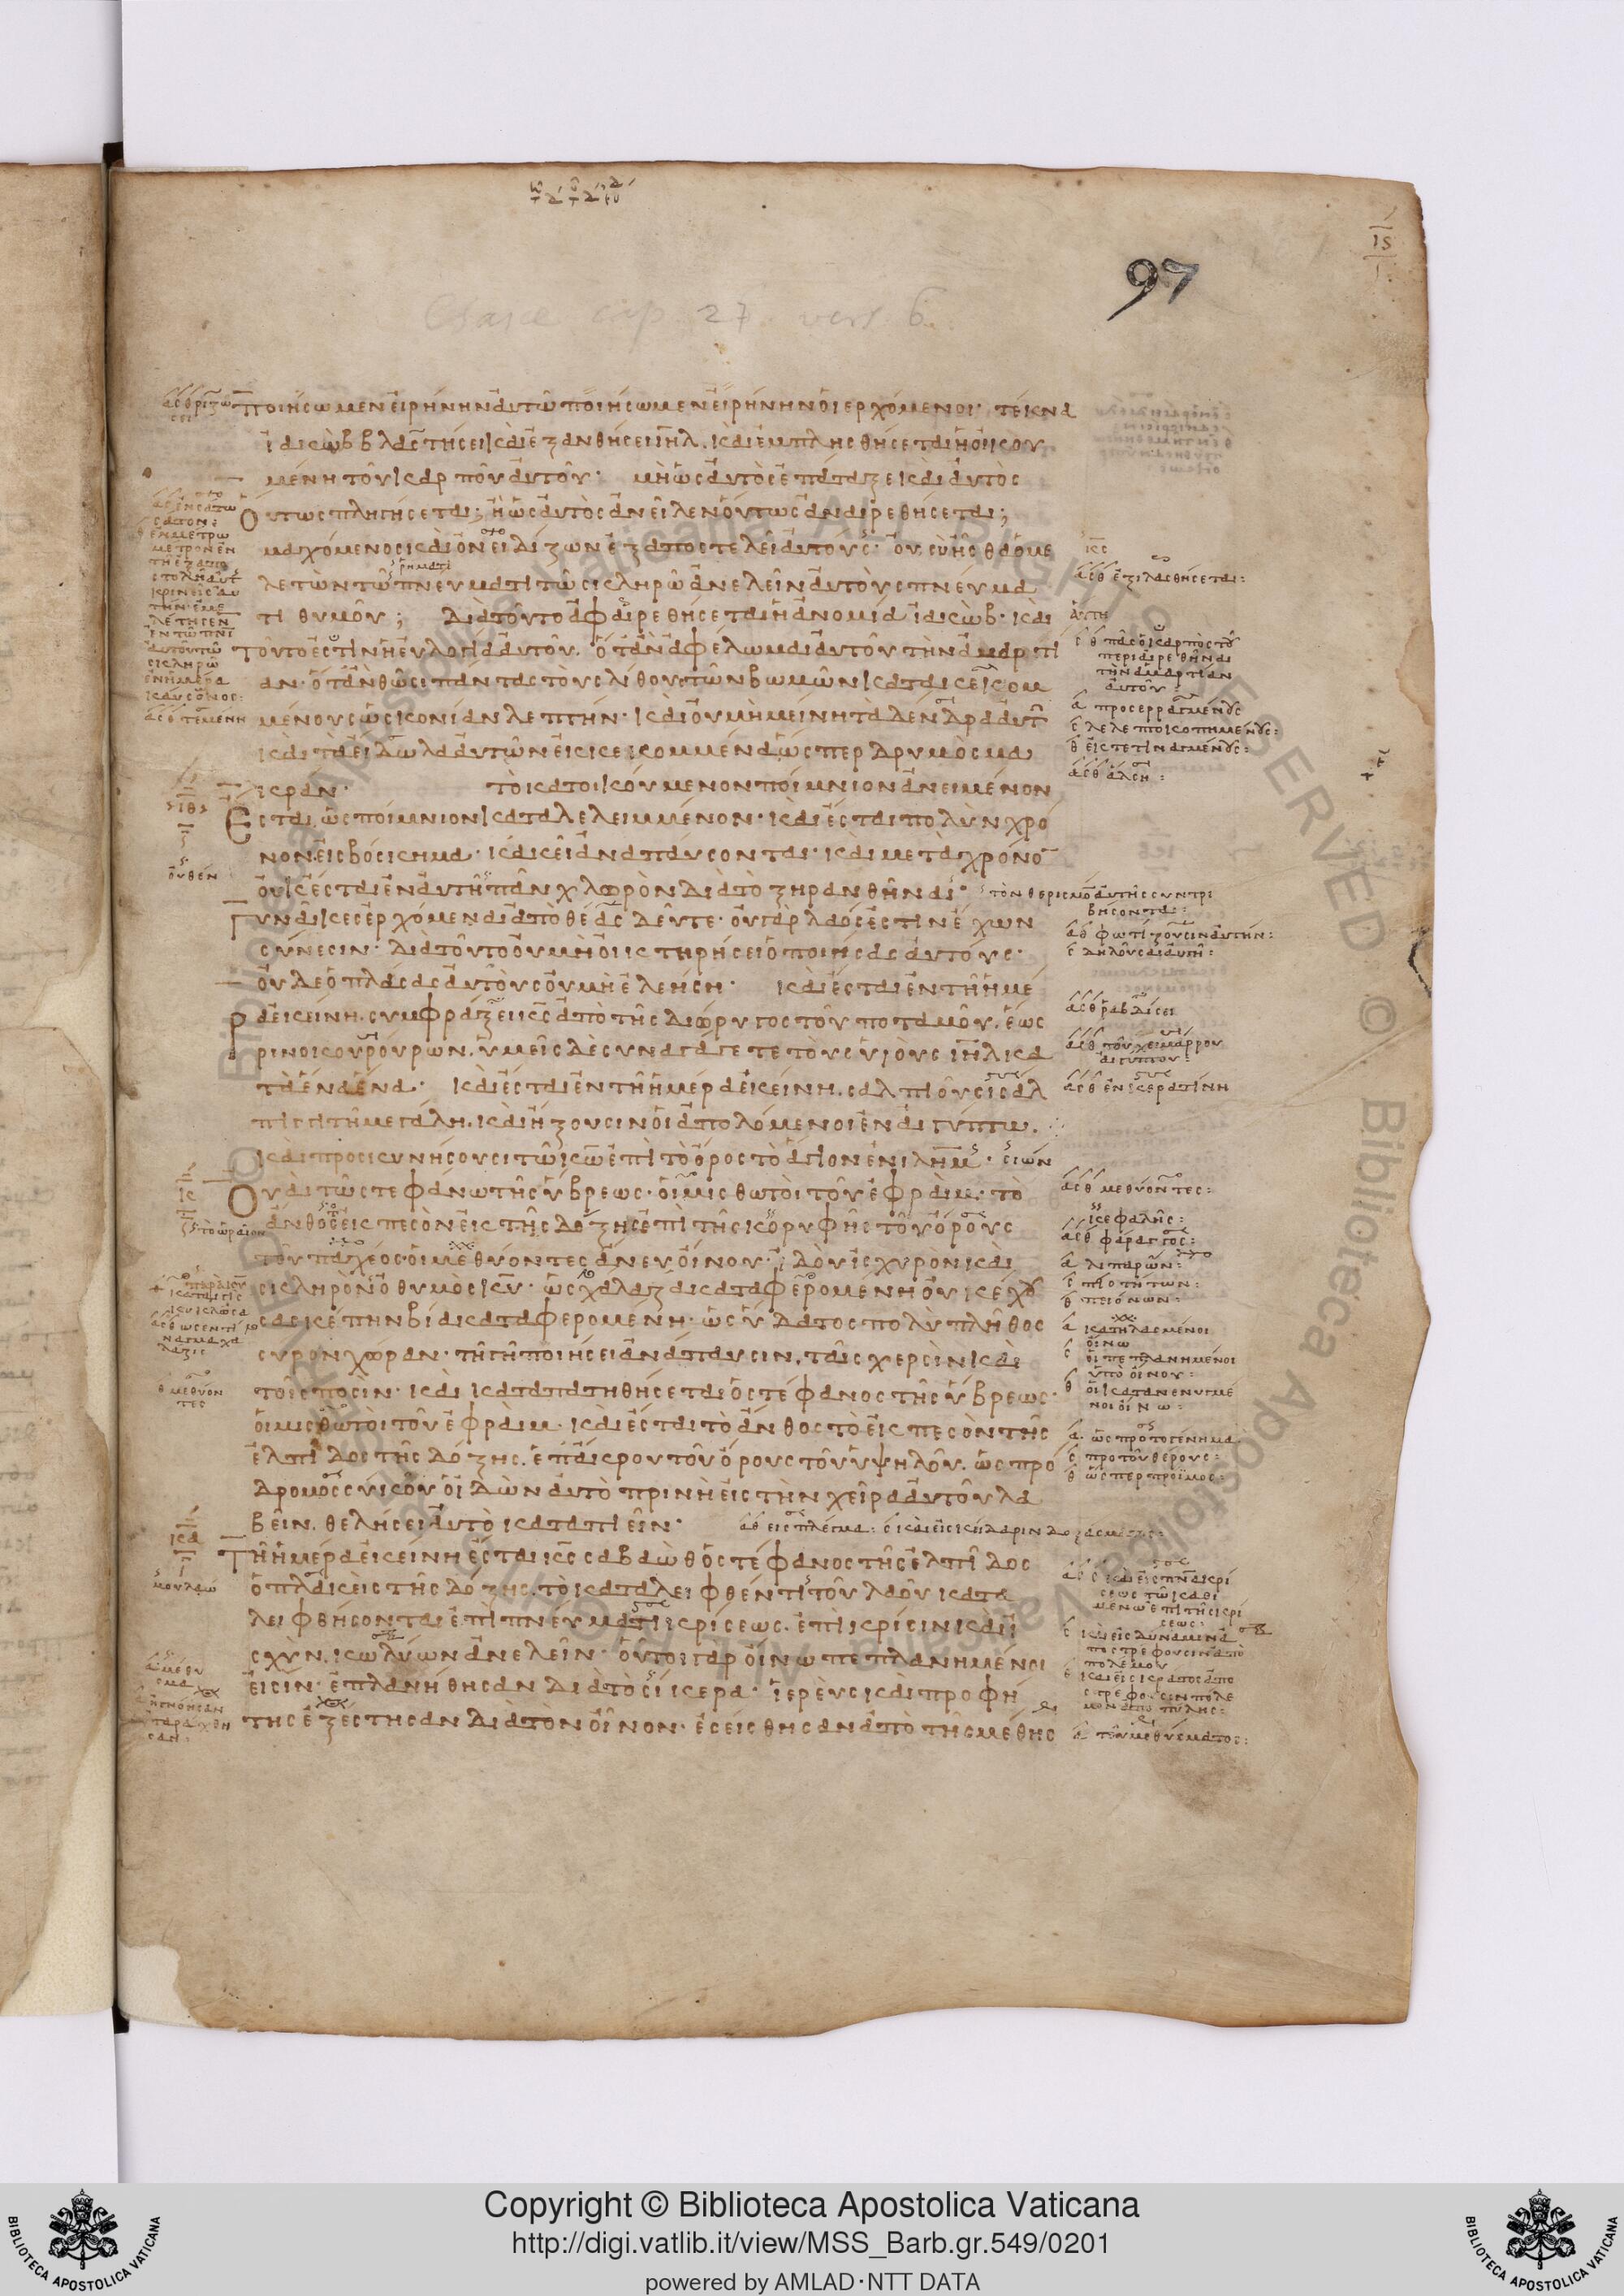 97
Esaïe cap. 27. vers. 6.
ποιήσωμεν εἰρήνην αὐτῷ ποιήσωμεν εἰρήνην οἱ ερχόμενοι· τέκνα
ἰακὼβ βλαστήσει καὶ ἐξανθήσει ιη̅λ. καὶ ἐμπλησθήσεται ἡ οἰκου
μένη τοῦ καρποῦ αὐτοῦ· μὴ ὡς αὐτὸς ἐπάταξε καὶ αὐτὸς
Οὕτως πληγήσεται; ἢ ὡς αὐτὸς ἀνεῖλεν οὕτως ἀναιρεθήσεται;
μαχόμενος καὶ ὀνειδίζων ἐξαποστελεῖ αὐτούς· οὐ σὺ ἦσθα ὁ με
λετῶν τῷ πνευματι τῷ σκληρῷ ἀνελεῖν αὐτοὺς πνεύμα
τι θυμοῦ; Διὰ τοῦτο ἀφαιρεθήσεται ἡ ἀνομία ἰακὼβ· καὶ
τοῦτο ἐστὶν ἡ εὐλογία αὐτοῦ. ὅταν ἀφέλωμαι αὐτοῦ τὴν ἁμαρτί
αν· ὅταν θῶσι πάντας τοὺς λίθους τῶν βωμῶν κατακεκομ
μένους ὡς κονίαν λεπτήν· καὶ οὐ μὴ μείνη τὰ δένδρα αὐτῶ
καὶ τὰ εἴδωλα αὐτῶν ἐκκεκομμένα ὥσπερ δρυμὸς μα
κράν· τὸ κατοικούμενον ποίμνιον ἀνειμένον
Ἔσται ὡς ποίμνιον καταλελειμμένον· καὶ ἔσται πολὺν χρό
νον εἰς βόσκημα· καὶ κεῖ ἀναπαύσονται· και μετὰ χρόνο
οὐκ ἔσται ἐν αὐτῇ πᾶν χλωρὸν διὰ τὸ ξηρανθῆναι·
Γυναῖκες ἐρχόμεναι ἀπὸ θέας δεῦτε· οὐ γὰρ λαός ἐστιν ἔχων
σύνεσιν· διὰ τοῦτο οὐ μὴ οἰκτηρήσει ὁ ποιήσας αὐτούς·
οὐδε ὁ πλάσας αὐτοὺς οὐ μὴ ἐλεήση· καὶ ἔσται ἐν τῇ ἡμέ
ρα ἐκείνη. συμφράξει κς̅ ἀπὸ τῆς διώρυγος τοῦ ποταμοῦ. ἕως
ρινοκουρούρων. ὑμεῖς δὲ συναγάγετε τοὺς υἱοὺς ιη̅λ κα
τὰ ἕνα ἕνα· καὶ ἔσται ἐν τῇ ἡμέρα ἐκείνη. σαλπιοῦσι σάλ
πιγγι τῇ μεγάλη. καὶ ἥξουσιν οἱ ἀπολόμενοι ἐν αἰγύπτω.
καὶ προσκυνήσουσι τῷ κω̅ ἐπὶ τὸ ὄρος τὸ ἅγιον ἐν ιλη̅μ· σιών
Οὐαὶ τῷ στεφάνω τῆς ὕβρεως· οἱ μισθωτοὶ τοῦ ἐφραὶμ· τὸ
ἄνθος ἐκπεσὸν ἐκ τῆς δόξης ἐπὶ τῆς κορυφῆς τοῦ ὄρους
τοῦ παχέος· οἱ μεθύοντες ἄνευ οἴνου· ἰδοὺ ἰσχυρὸν καὶ
σκληρὸν ὁ θυμὸς κυ̅· ὡς χάλαζα καταφερομένη οὐκ ἔχου
σα σκέπην βίᾳ καταφερομένη· ὡς ὕδατος πολὺ πλῆθος
σῦρον χώραν· τῇ γῇ ποιήσει ἀνάπαυσιν, ταῖς χερσὶν καὶ
τοῖς ποσὶν· καὶ καταπατηθήσεται ὁ στέφανος τῆς ὕβρεως·
οἱ μισθωτοὶ τοῦ ἐφραὶμ· καὶ ἔσται τὸ ἄνθος τὸ ἐκπεσὸν τῆς
ἐλπίδος τῆς δόξης. ἐπ ἄκρου τοῦ ὄρους τοῦ ὑψηλοῦ. ὡς πρό
δρομος σύκου ὁ ἰδὼν αὐτὸ πρινὴ εἰς τὴν χεῖρα αὐτοῦ λα
βεῖν. θελήσει αὐτὸ καταπιεῖν·
Τῇ ἡμέρα ἐκείνη ἔσται κς̅ σαβαὼθ ὁ στέφανος τῆς ἐλπίδος
ὁ πλακεὶς τῆς δόξης. τὸ καταλειφθέν τι τοῦ λαοῦ κατα
λειφθήσονται ἐπὶ πνεύματι κρίσεως. ἐπὶ κρίσιν καὶ ἰ
σχὺν. κωλύων ἀνελεῖν· οὗτοι γαρ οἴνω πεπλανημένοι
εἰσιν· ἐπλανήθησαν διὰ τὸ σίκερα· ἱερεὺς καὶ προφή
της ἐξέστησαν διὰ τὸν οἶνον· ἐσείσθησαν ἀπὸ τῆς μέθης
ἐξιλασθήσεται:
πᾶς ὁ καρπὸς τοῦ
περιαιρεθῆναι
τὴν ἁμαρτίαν
αὐτοῦ:
ἄλση:
τὸν θερισμὸ αὐτῆς συντρι
βήσονται:
φωτίζουσιν αὐτήν:
ῥαβδίσει
τοῦ χειμάρρου
αἰγύπτου:
ἐν κερατίνη
μεθύοντες:
κεφαλῆς:
φάραγγος:
λιπαρῶν:
πιοτήτων:
πειόνων:
οἴνω
οἱ πεπλανημένοι
ὑπὸ οἴνου:
ὡς πρωτογένημα
προ τοῦ θέρους:
ὥσπερ πρόϊμος:
οὐθέν
τὸ ὡραῖον
τοῦ μεθύσματος:
Copyright © Biblioteca Apostolica Vaticana
http://digi.vatlib.it/view/MSS_Barb.gr.549/0201
powered by AMLAD·NTT DATA
BIBLIOTECA APOSTOLICA VATICANA
BIBLIOTECA APOSTOLICA VATICANA